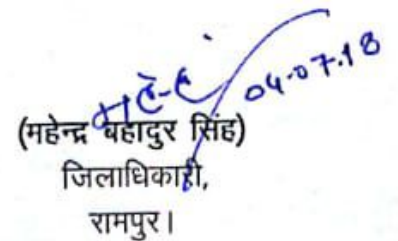 04.07.18
(महेन्द्र बहादुर सिंह)
जिलाधिकारी,
रामपुर।